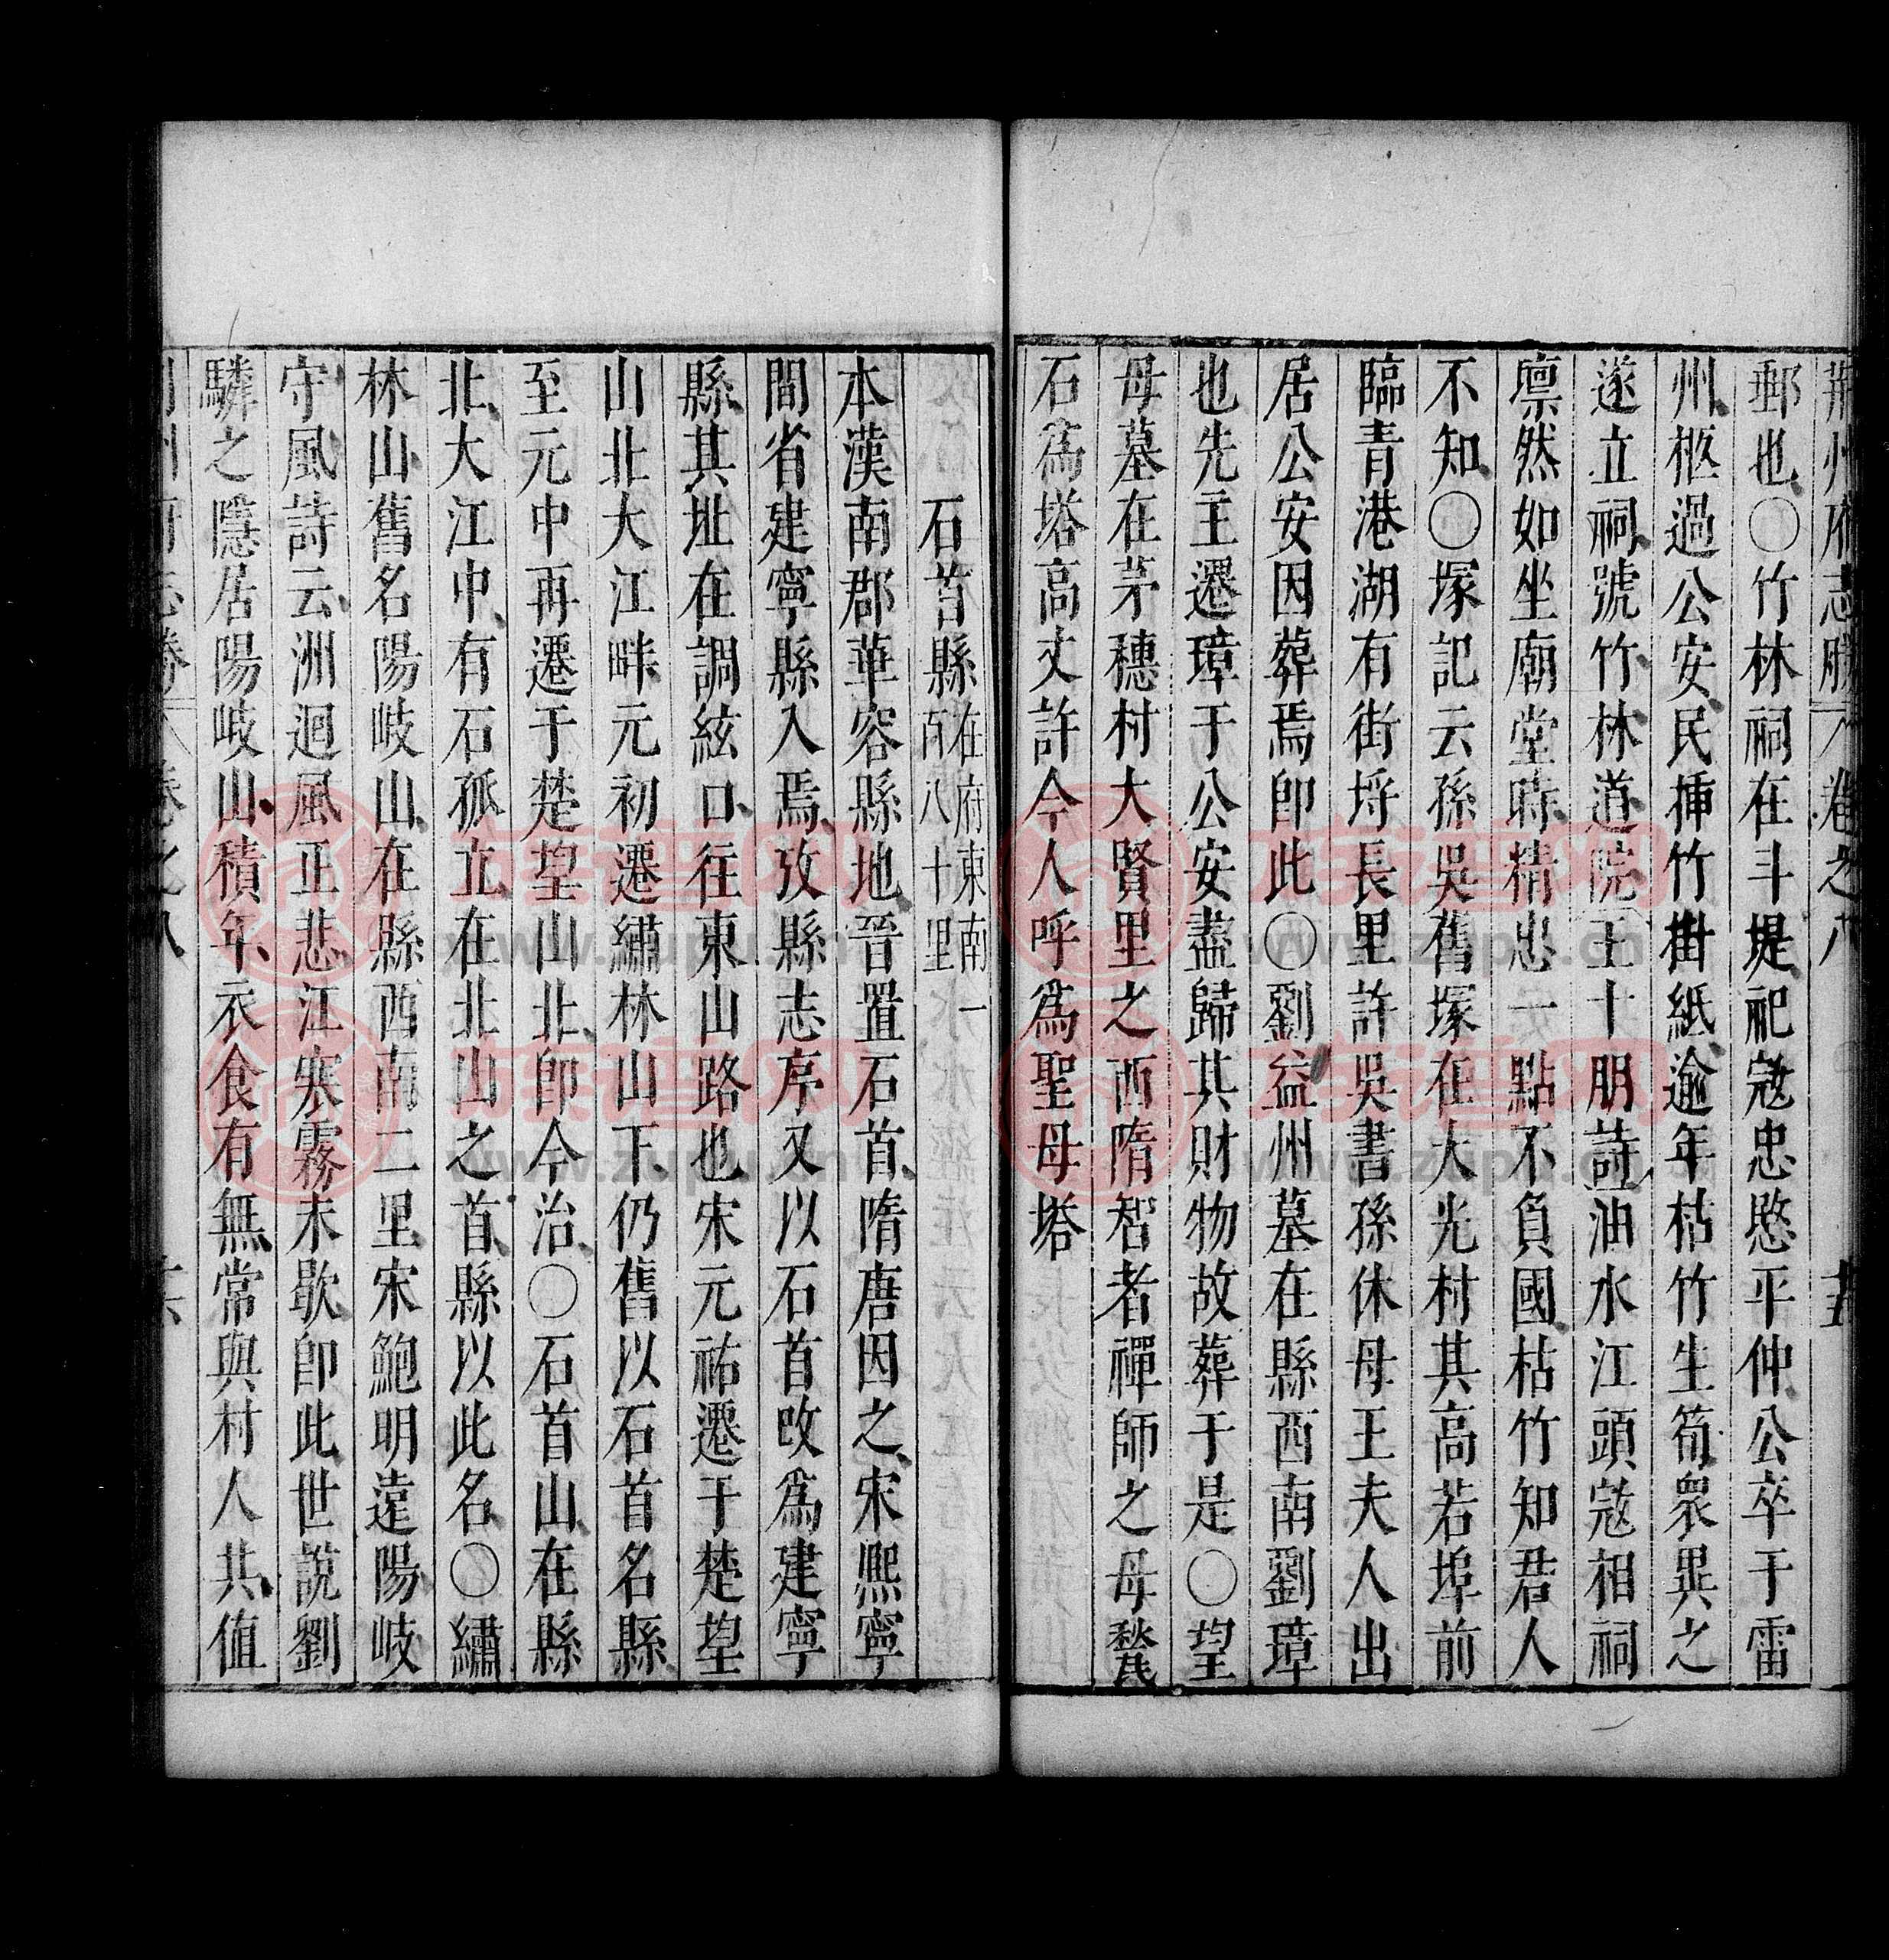 荊州府志勝 卷之八 十五
郵也○竹林祠在斗堤祀寇忠愍平仲公卒于雷
州柩過公安民揷竹掛紙逾年枯竹生筍衆異之
遂立祠號竹林道院王十朋詩油水江頭寇相祠
凛然如坐廟堂時精忠一點不負國枯竹知君人
不知○塚記云孫吳舊塚在大光村其高若埠前
臨青港湖有街埒長里許吳書孫休母王夫人出
居公安因葬焉卽此○劉益州墓在縣西南劉璋
也先主遷璋于公安盡歸其財物故葬于是○望
母墓在茅穗村大賢里之西隋智者禪師之母甃
石爲塔高丈許今人呼爲聖母塔
石首縣 在府東南一百八十里
本漢南郡華容縣地晉置石首隋唐因之宋熙寧
間省建寧縣入焉攷縣志序又以石首改爲建寧
縣其址在調絃口往東山路也宋元祐遷于楚望
山北大江畔元初遷繡林山下仍舊以石首名縣
至元中再遷于楚望山北卽今治○石首山在縣
北大江中有石孤立在北山之首縣以此名○繡
林山舊名陽岐山在縣西南二里宋鮑明遠陽岐
守風詩云洲迴風正悲江寒霧未歇卽此世說劉
驎之隱居陽岐山積年衣食有無常與村人共值
州府志勝 卷之八 十六